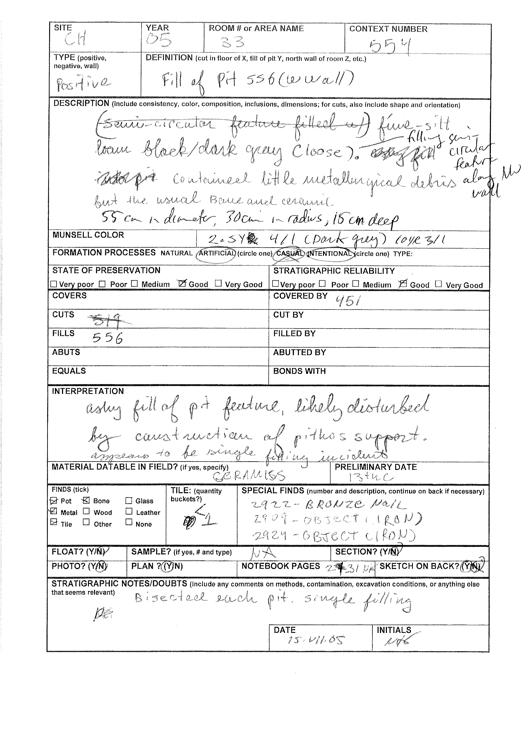 SITE YEAR ROOM # or AREA NAME CONTEXT NUMBER
CH 05 33 554
TYPE (positive, negative, wall) DEFINITION (cut in floor of X, fill of pit Y, north wall of room Z, etc.)
Positive Fill of Pit 556 (W wall)
DESCRIPTION (include consistency, color, composition, inclusions, dimensions; for cuts, also include shape and orientation)
(semi-circular feature filled w/) fine-silt
loam black/dark gray (loose). fill filling semi circular feature along NW wall
pit contained little metallurgical debris
but the usual Bone and ceramic.
55 cm in diameter, 30cm in radius, 15 cm deep
MUNSELL COLOR 2.5Y 4/1 (Dark grey) 10YR 3/1
FORMATION PROCESSES NATURAL / ARTIFICIAL (circle one) CASUAL / INTENTIONAL (circle one) TYPE:
STATE OF PRESERVATION STRATIGRAPHIC RELIABILITY
☐ Very poor ☐ Poor ☐ Medium ☑ Good ☐ Very Good ☐ Very poor ☐ Poor ☐ Medium ☑ Good ☐ Very Good
COVERS COVERED BY 451
CUTS 519 CUT BY
FILLS 556 FILLED BY
ABUTS ABUTTED BY
EQUALS BONDS WITH
INTERPRETATION
ashy fill of pit feature, likely disturbed
by construction of pithos support.
appears to be single filling incident
MATERIAL DATABLE IN FIELD? (if yes, specify) CERAMICS PRELIMINARY DATE 13th C
FINDS (tick) TILE: (quantity buckets?) SPECIAL FINDS (number and description, continue on back if necessary)
☑ Pot ☑ Bone ☐ Glass <1 2922 - BRONZE NAIL
☑ Metal ☐ Wood ☐ Leather 2909 - OBJECT (IRON)
☑ Tile ☐ Other ☐ None 2924 - OBJECT (IRON)
FLOAT? (Y/N) SAMPLE? (if yes, # and type) NA SECTION? (Y/N)
PHOTO? (Y/N) PLAN? (Y/N) NOTEBOOK PAGES SKETCH ON BACK? (Y/N)
STRATIGRAPHIC NOTES/DOUBTS (include any comments on methods, contamination, excavation conditions, or anything else that seems relevant)
Bisected each pit. single filling
DATE INITIALS
15.VII.05